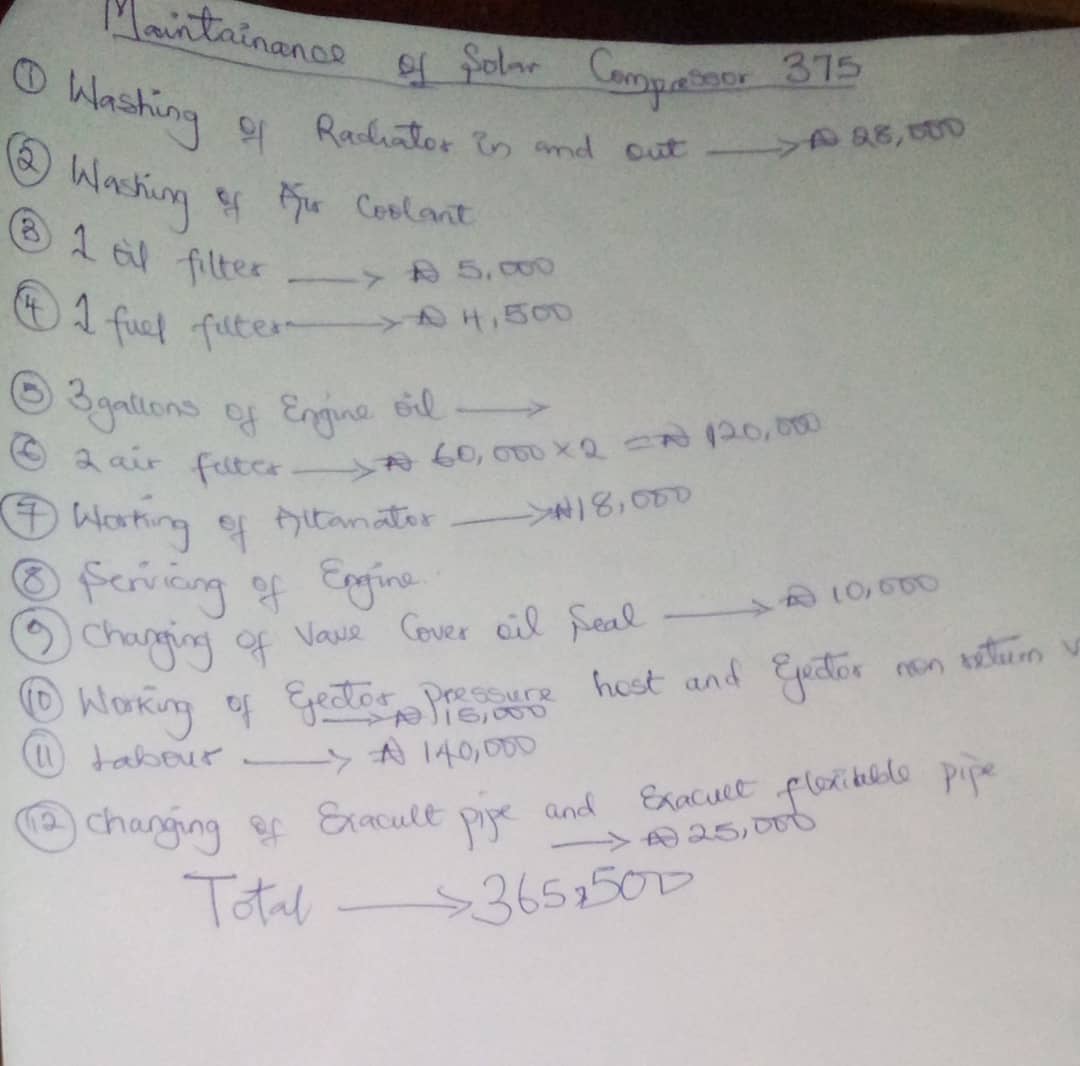 Maintainance of Solar Compressor 375
① Washing of Radiator in and out → ₦ 28,000
② Washing of Air Coolant
③ 1 oil filter → ₦ 5,000
④ 1 fuel filter → ₦ 4,500
⑤ 3 gallons of Engine oil →
⑥ 2 air filter → ₦ 60,000 x 2 = ₦ 120,000
⑦ Working of Altanator → ₦18,000
⑧ Servicing of Engine
⑨ Changing of Vave Cover oil Seal → ₦ 10,000
⑩ Working of Ejector Pressure host and Ejector non return v
→ ₦ 15,000
⑪ Labour → ₦ 140,000
⑫ Changing of Exacult pipe and Exacult flexibable pipe
→ ₦ 25,000
Total → 365,500